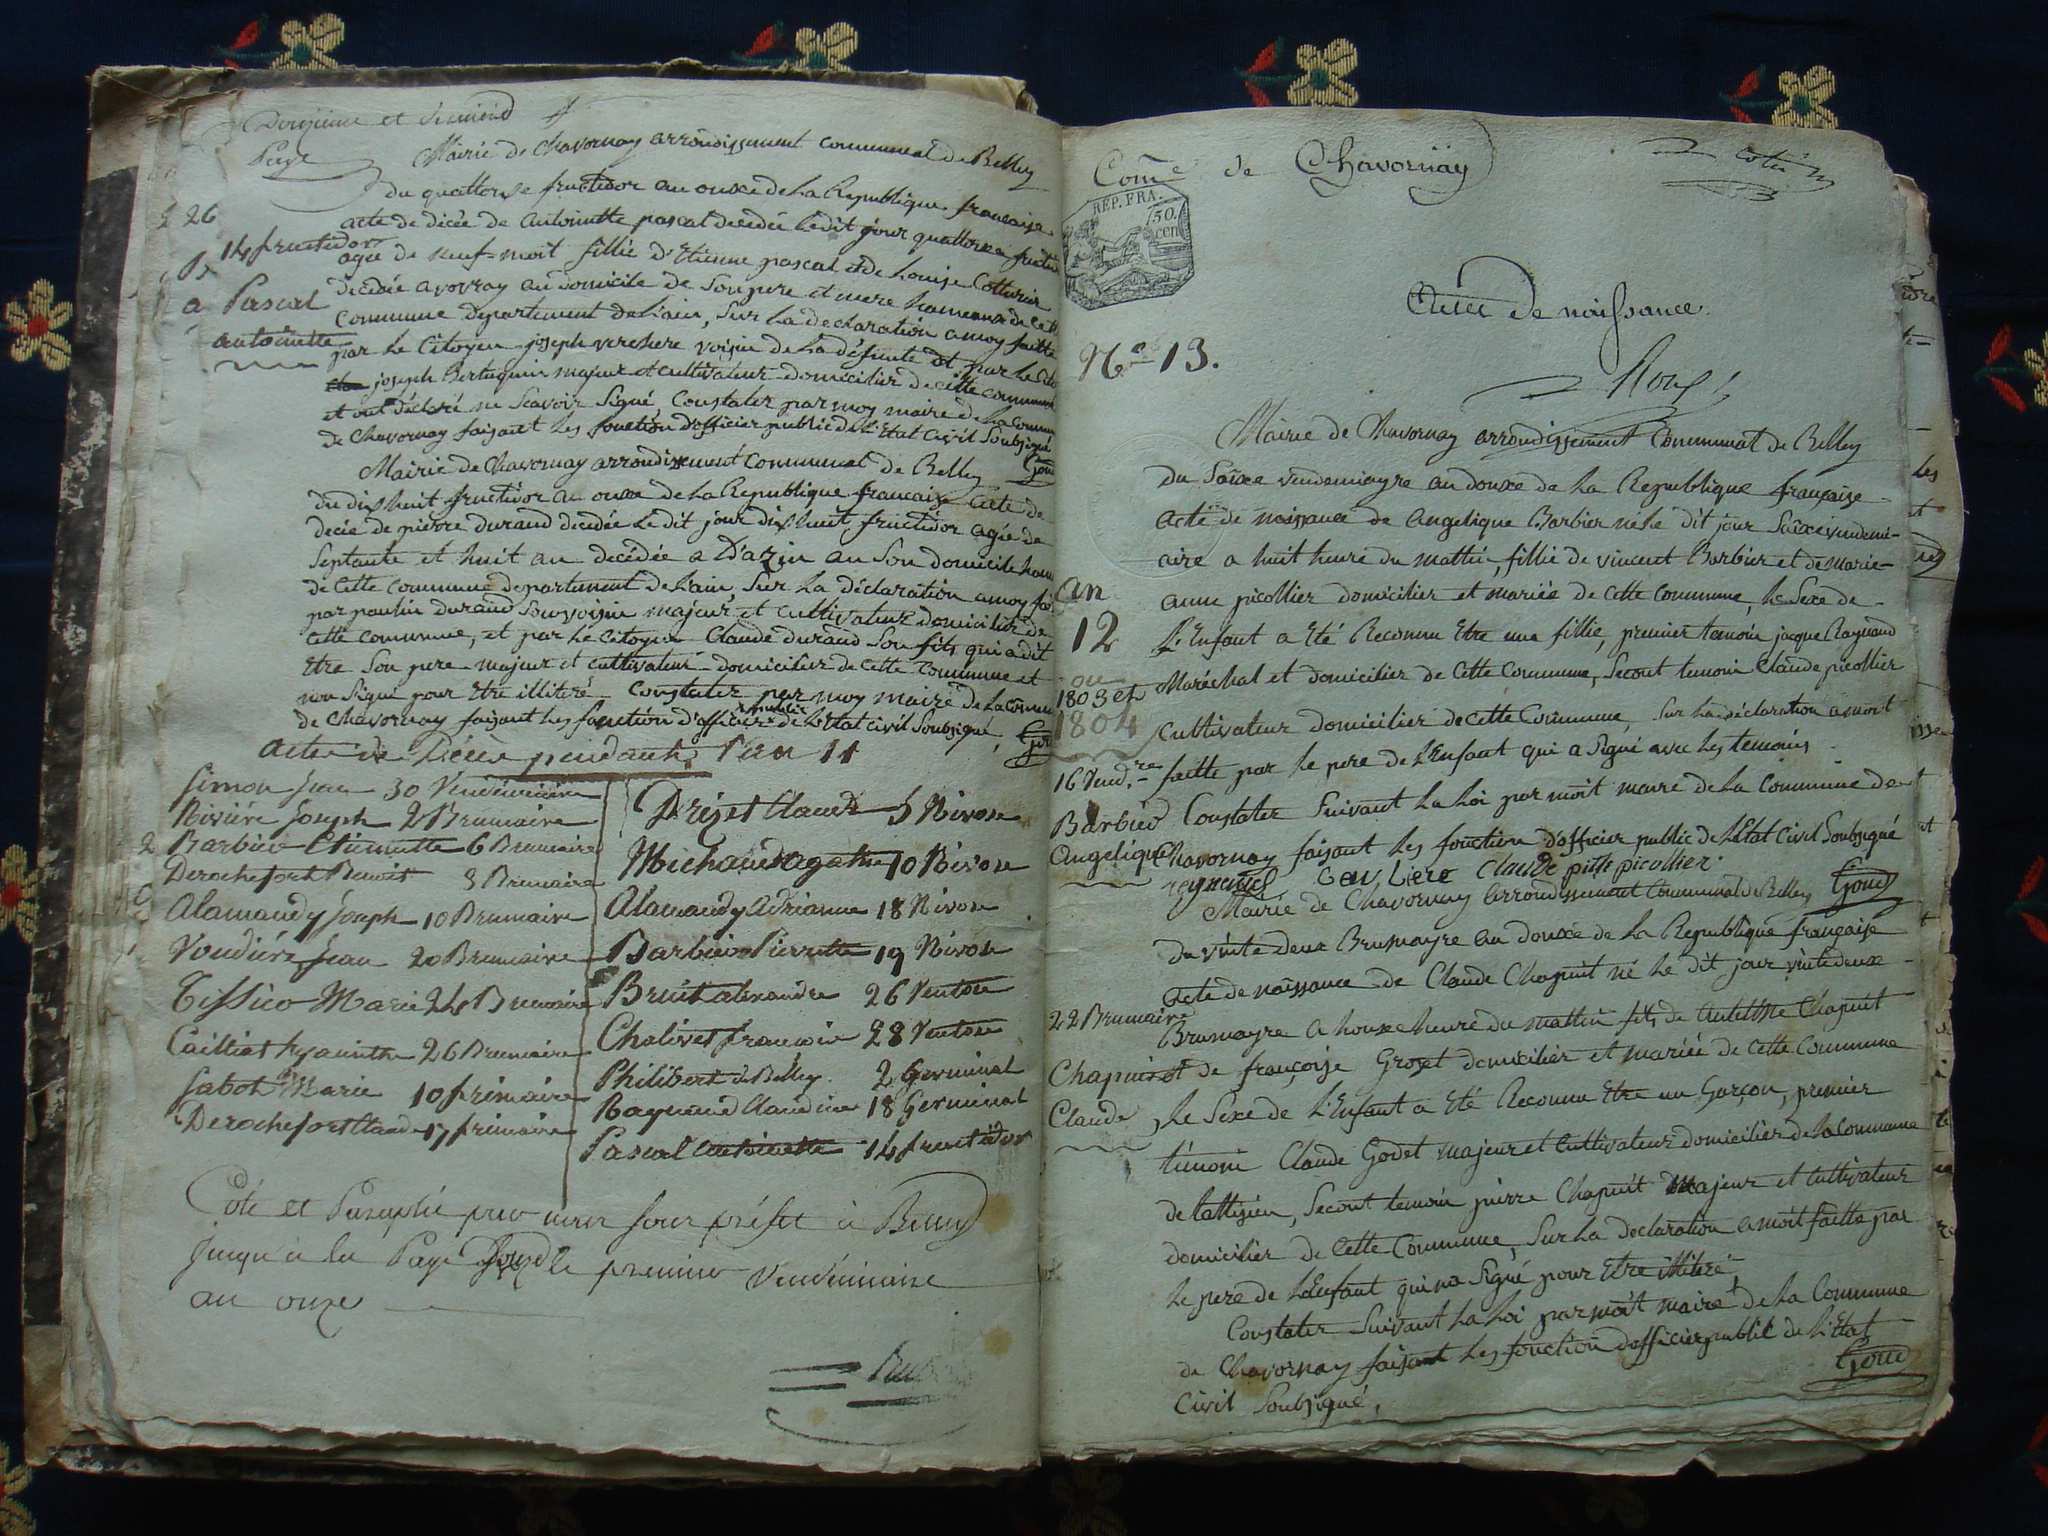 Douzieme et dernierd
Page
Mairie de Chavornay arrondissement communal de Belley
du quattorse fructidor an onxe de la Republique francaise
acte de dicée de antoinette pascal decedée ledit jour quattorse fructid
agée de neuf=moit fillie d'Etienne pascal et de Louise Cotturier
decedée avovray au domicile de son pere et mere hameaux de cette
commune departement de Lain, Sur la declaration amoy faitte
par le Citoyen joseph verchere voisin de la défunte et par le Cito
joseph Bertuquin majeur et cultivateur domicilier de cette commune
et ont déclaré ne Scavoir Signé, Constater par moy maire de la commun
de Chavornay faisant les fonction d'officier public de L'Etat Civil Soubsigné
Goud
26
14 fructidor
Pascal
antoinette
Mairie de Chavornay arrondissement communal de Belley
du dixhuit fructidor an onxe de la Republique francaise acte de
decée de pierre durand decedée Le dit jour dixhuit fructidor agée de
Septante et huit an decédée a D'azin au Son domicile ham
de Cette commune departement de Lain, Sur la déclaration amoy fai
par paulin durand Son voisin majeur et cultivateur domicilier de
Cette commune, et par Le Citoyen Claude durand Son fits qui a dit
Etre Son pere majeur et cultivateur domicilier de cette commune et
non Signé pour Etre illiteré Constater par moy maire de la commu
public
de Chavornay faisant les fonction d'officier de L'Etat civil Soubsigné,
actes de Décès pendant l'an 11
Simon Jean 30 Vendémiaire
Riviére Joseph 2 Brumaire
Barbier Etiennette 6 Brumaire
Derochefort Benoit 8 Brumaire
Alamandy Joseph 10 Brumaire
Voudiére Jean 20 Brumaire
Tissico Marie 24 Brumaire
Cailliat hyacinthe 26 Brumaire
Jabot Marie 10 frimaire
Derochefort Claude 17 frimaire
Drezet Claude 5 Nivose
Michaud agathe 10 Nivose
Alamandy Adrianne 18 Nivose
Barbier Pierrette 19 Nivose
Bruit alexandre 26 Ventose
Chalivet francois 28 Ventose
Philibert de Belley 2 Germinal
Raynaud Claudine 18 Germinal
Pascal antoinette 14 fructidor
Coté et Paraphé par nous sous préfet à Belley
jusqu'à la Page douze le premier Vendémiaire
an onze
Com.e de Chavornay
coté
REP. FRA.
50.
cen
Actes de naissance.
N.o 13.
Roux
Mairie de Chavornay arrondissement Communal de Belley
du Saîxe vendemiayre an douxe de la Republique française
acte de naissance de angelique Barbier né le dit jour Saîxe vendemi-
aire a huit heure du mattin, fillie de vincent Barbier et de marie-
anne picollier domicilier et mariée de cette commune, le Sexe de
L'Enfant a Eté Reconnu Etre une fillie, premier temoin jacque Raynaud
Maréchal et domicilier de cette Commune, Secont temoin Claude picollier
Cultivateur domicilier de cette Commune, Sur la déclaration a moit
faitte par le pere de L'Enfant qui a Signé avec les temoins.
Constater Suivant la Loi par moit maire de la Commune de
Chavornay faisant les fonction d'officier public de L'Etat Civil Soubsigné
an
12
ou
1803 et
1804
16 Vend.re
Barbier
Angelique
claude picollier
Goud
Mairie de Chavornay arrondissement Communal de Belley
du vinte deux Brumayre an douxe de la Republique française
acte de naissance de Claude Chapuit né Le dit jour vinte deux
Brumayre a honxe heure du mattin fits de antelme Chapuit
et de françoise Groxet domicilier et mariée de cette Commune
Le Sexe de L'Enfant a Eté Reconnu Etre un Garçon, premier
témoin Claude Godet majeur et Cultivateur domicilier de la Commune
de lattigieu, Secont temoin pierre Chapuit Majeur et Cultivateur
domicilier de Cette Commune, Sur la declaration a moit faitte par
le pere de L'Enfant qui na Signé pour Etre illiteré,
Constater Suivant la Loi par moit maire de la Commune
de Chavornay faisant les fonction d'officier public de L'Etat
Civil Soubsigné,
Goud
22 Brumaire
Chapuis
Claude